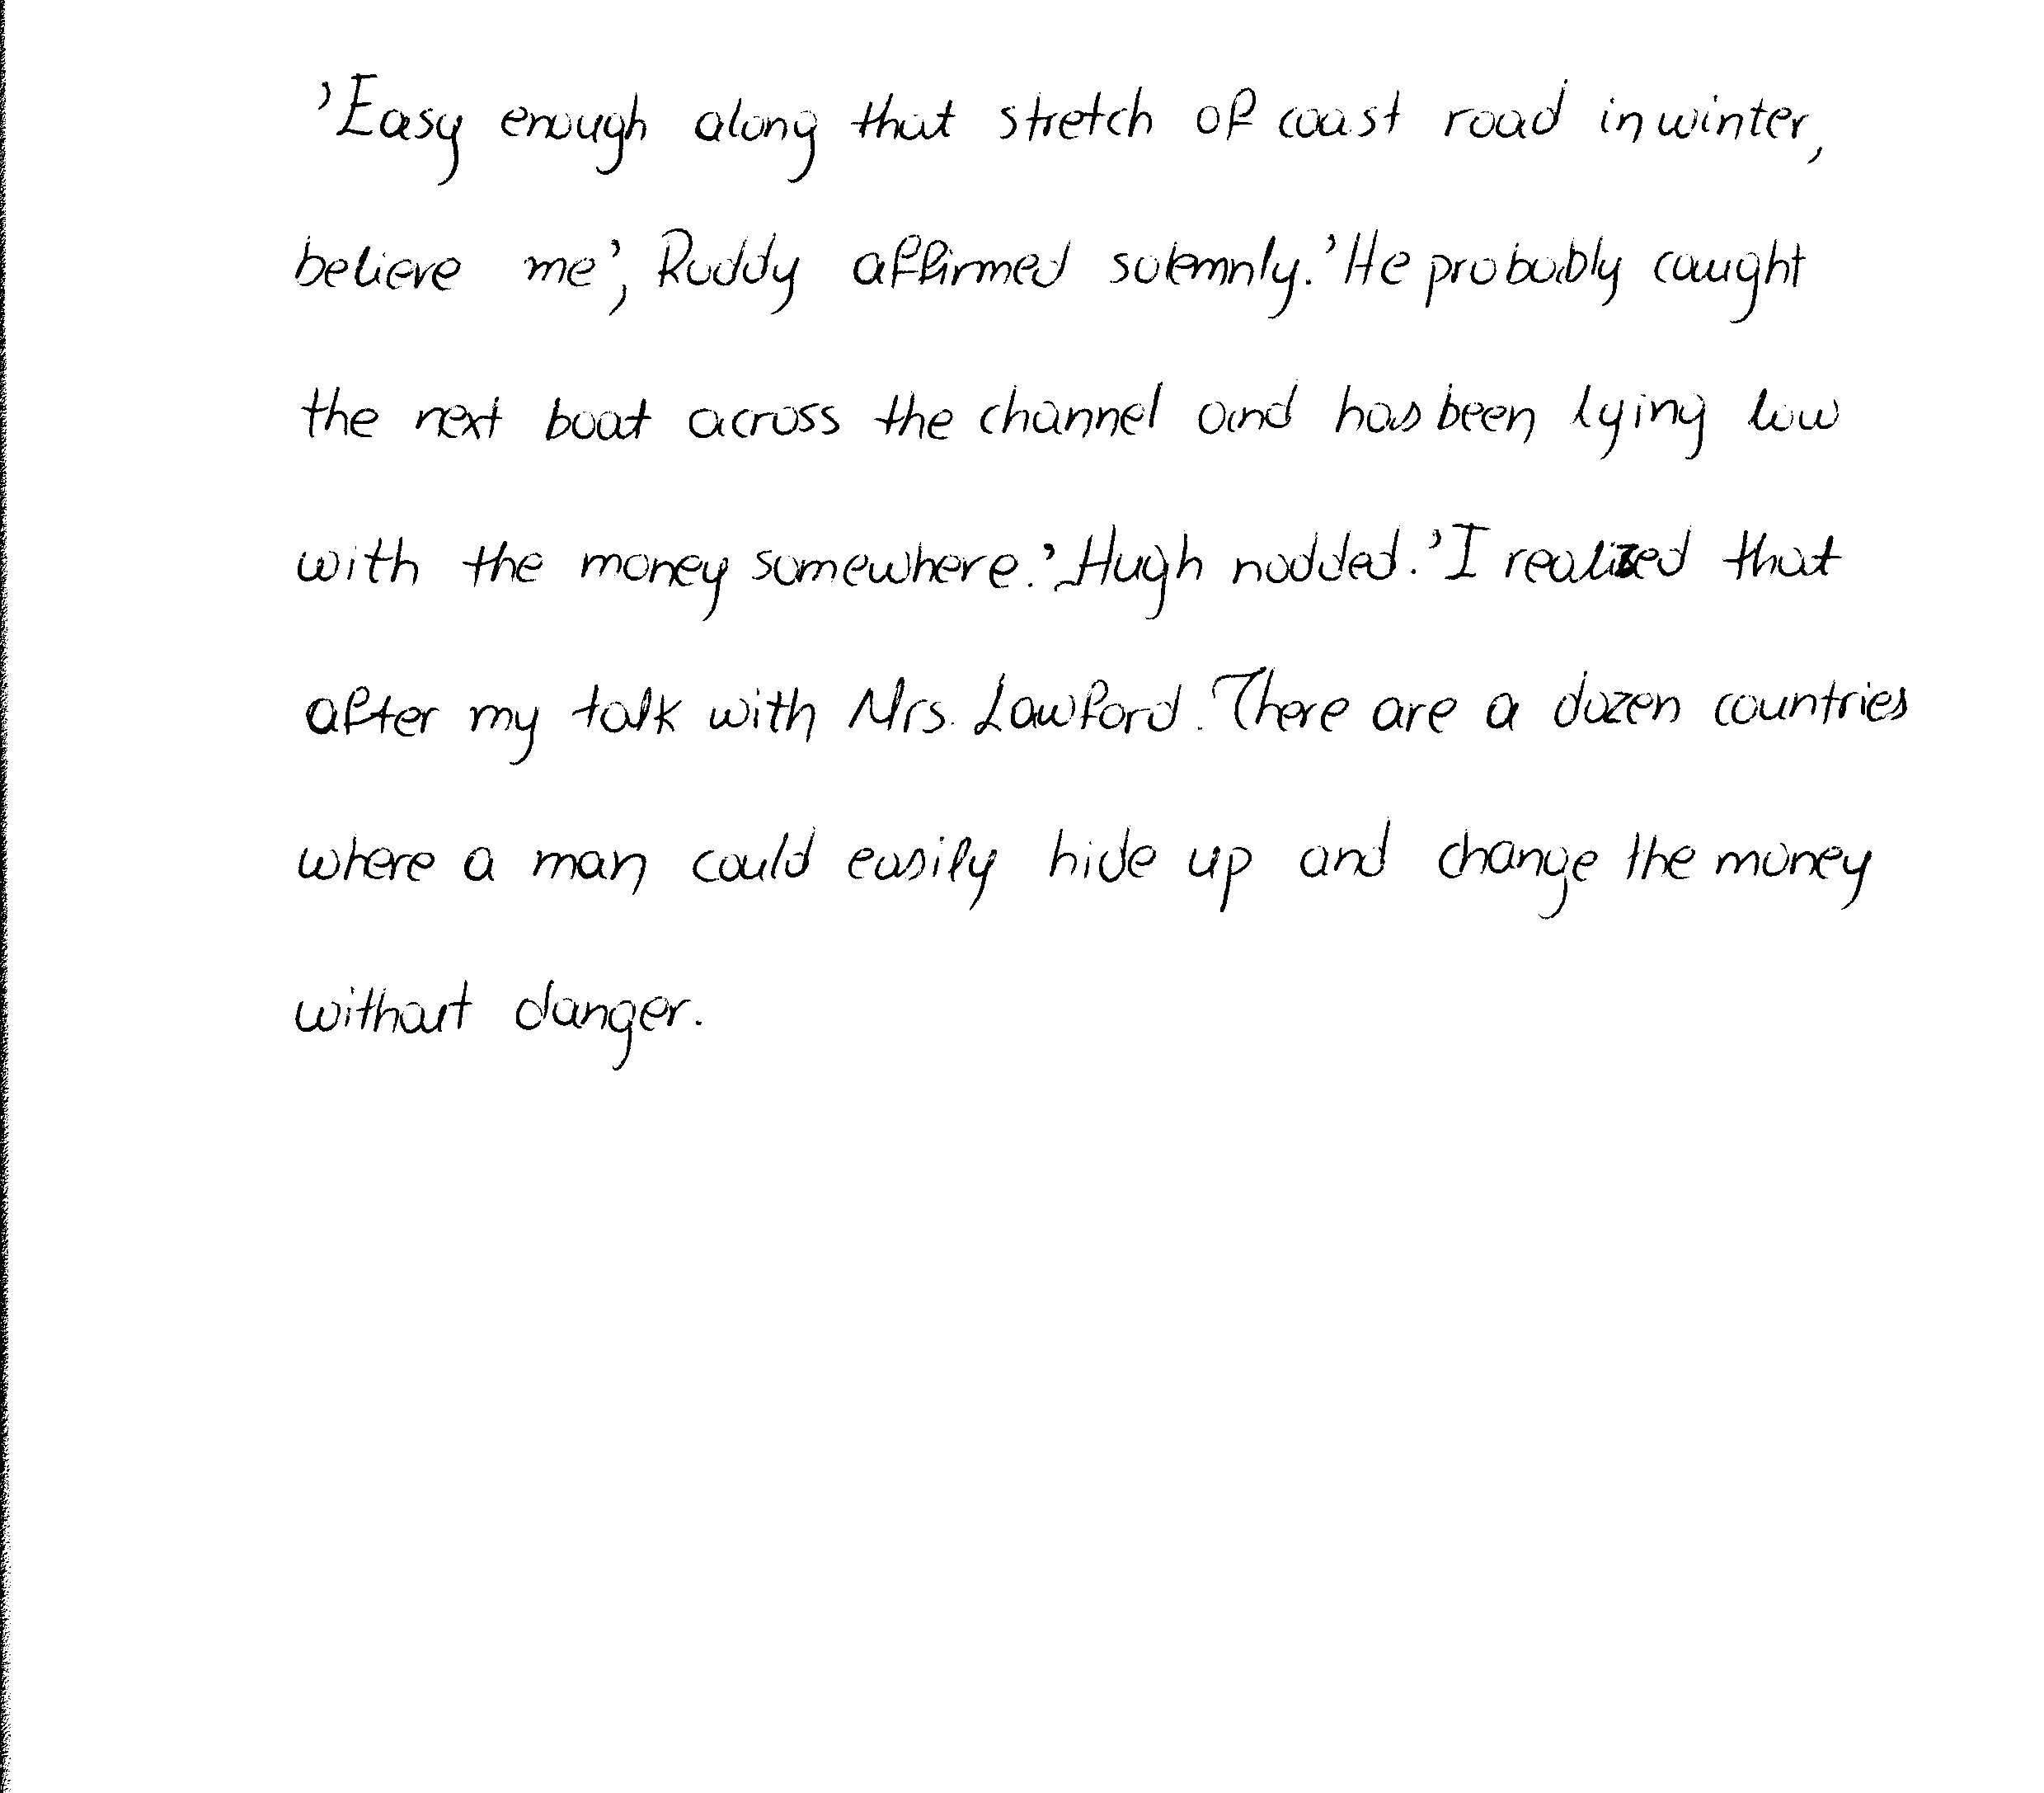 'Easy enough along that stretch of coast road in winter,
believe me', Ruddy affirmed solemnly. 'He probably caught
the next boat across the channel and has been lying low
with the money somewhere.' Hugh nodded. 'I realized that
after my talk with Mrs. Lawford. There are a dozen countries
where a man could easily hide up and change the money
without danger.